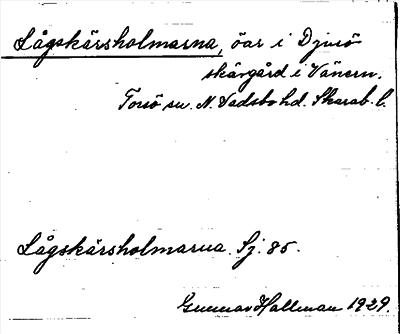 Lågskärsholmarna, öar i Djurö
skärgård i Vänern.
Torsö sn. N. Vadsbo hd. Skarab. l.
Lågskärsholmarna. Sj. 85.
Gunnar Hallman 1929.